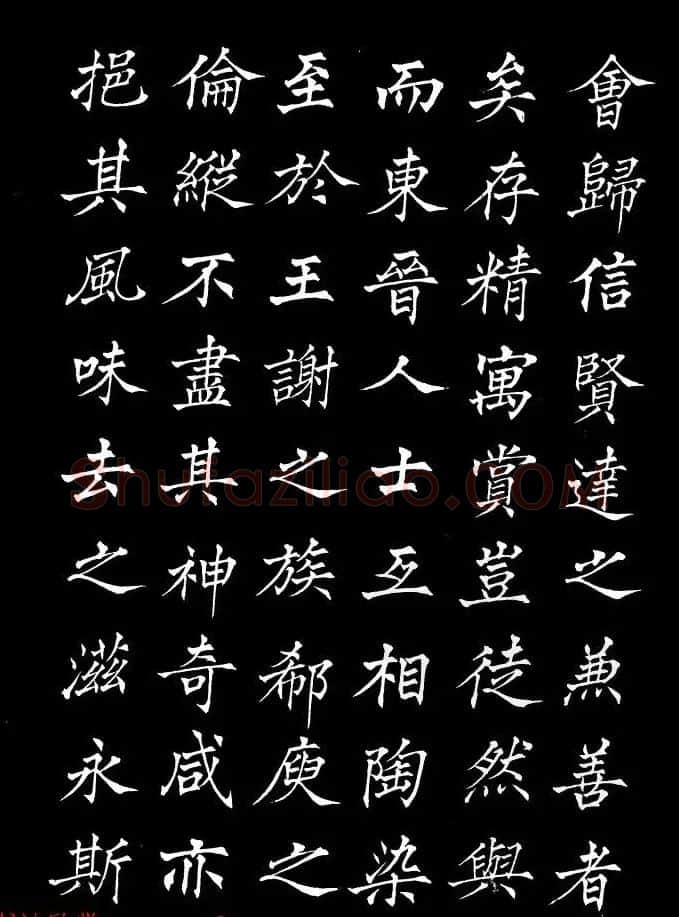 會歸信賢達之兼善者
矣存精寓賞豈徒然與
而東晉人士互相陶染
至於王謝之族郗庾之
倫縱不盡其神奇咸亦
挹其風味去之滋永斯
Shufaziliao.COM